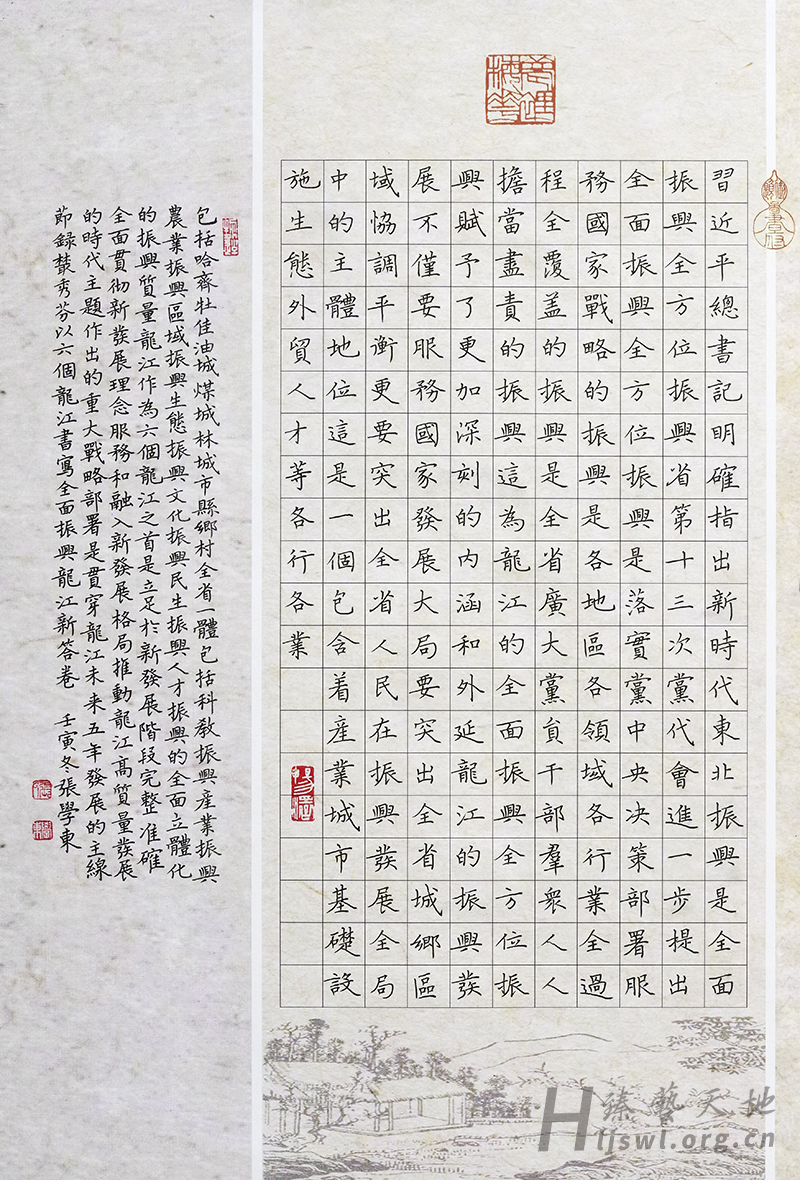 習近平總書記明確指出新時代東北振興是全面
振興全方位振興省第十三次黨代會進一步提出
全面振興全方位振興是落實黨中央決策部署服
務國家戰略的振興是各地區各領域各行業全過
程全覆蓋的振興是全省廣大黨員干部羣衆人人
擔當盡責的振興這為龍江的全面振興全方位振
興賦予了更加深刻的内涵和外延龍江的振興發
展不僅要服務國家發展大局要突出全省城鄉區
域協調平衡更要突出全省人民在振興發展全局
中的主體地位這是一個包含着産業城市基礎設
施生態外貿人才等各行各業
包括哈齊牡佳油城煤城林城市縣鄉村全省一體包括科教振興産業振興
農業振興區域振興生態振興文化振興民生振興人才振興的全面立體化
的振興質量龍江作為六個龍江之首是立足於新發展階段完整准確
全面貫彻新發展理念服務和融入新發展格局推動龍江高質量發展
的時代主題作出的重大戰略部署是貫穿龍江未来五年發展的主線
節録藂秀芬以六個龍江書寫全面振興龍江新答卷 壬寅冬張學東
臻藝天地
Htjswl.org.cn